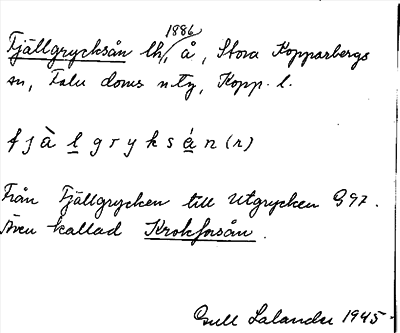 Fjällgrycksån lh, 1886 å, Stora Kopparbergs
sn, Falu doms n tg, Kopp. l.
f j à l g r y k s á n (r)
Från Fjällgrycken till Utgrycken G 97.
Även kallad Krokforsån.
Gull Lalander 1945.